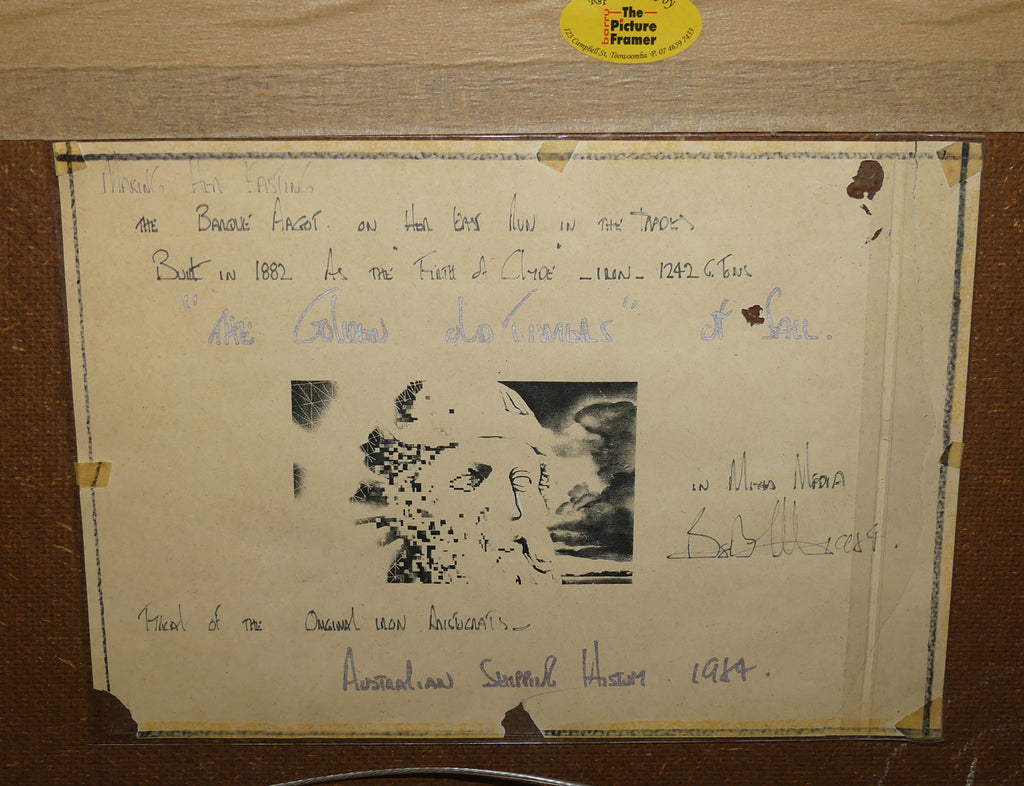 by
barry The
Picture
Framer
123 Campbell St, Toowoomba P. 07 4639 7433
MAKING HER EASTING
THE BARQUE ON HER EASY RUN IN THE TRADES
BUILT IN 1882 AS THE "FIRTH OF CLYDE" - IRON - 1242 G. TONS
"THE GOLDEN OLD TIMERS" OF SAIL.
IN MIXED MEDIA
TYPICAL OF THE ORIGINAL IRON ARISTOCRATS -
AUSTRALIAN SHIPPING HISTORY 1984.